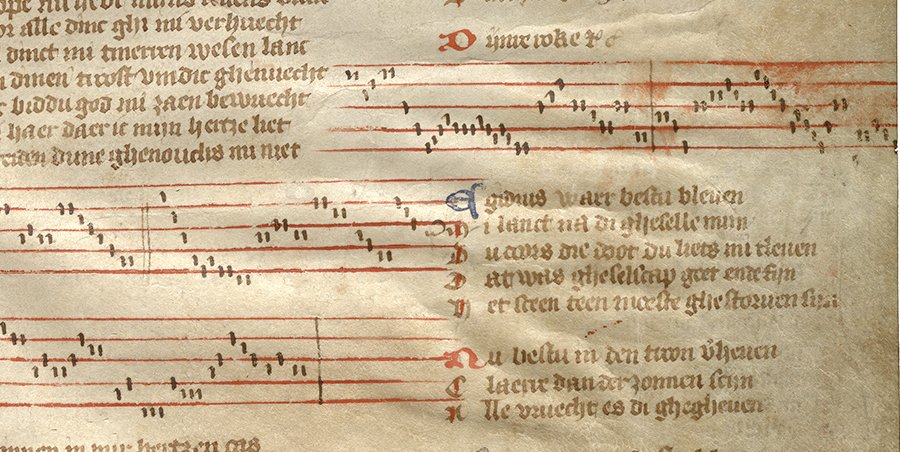 or alle dinc ghi mi verhuecht
dinct mi tmerren wesen lanc
dinen troost vindic ghenuecht
biddu god mi zaen bewuecht
haer daer ic mijn hertze liet
dune ghenouchs mi niet
in mir hertzen
Egidius waer bestu bleuen
Mi lanct na di gheselle mijn
Du cors die doot du liets mi tleuen
Dat was gheselscap goet ende fijn
Het sceen teen moeste ghestoruen sijn
Nu bestu in den troon v'heuen
Claerre dan der zonnen scijn
Alle vruecht es di ghegheuen